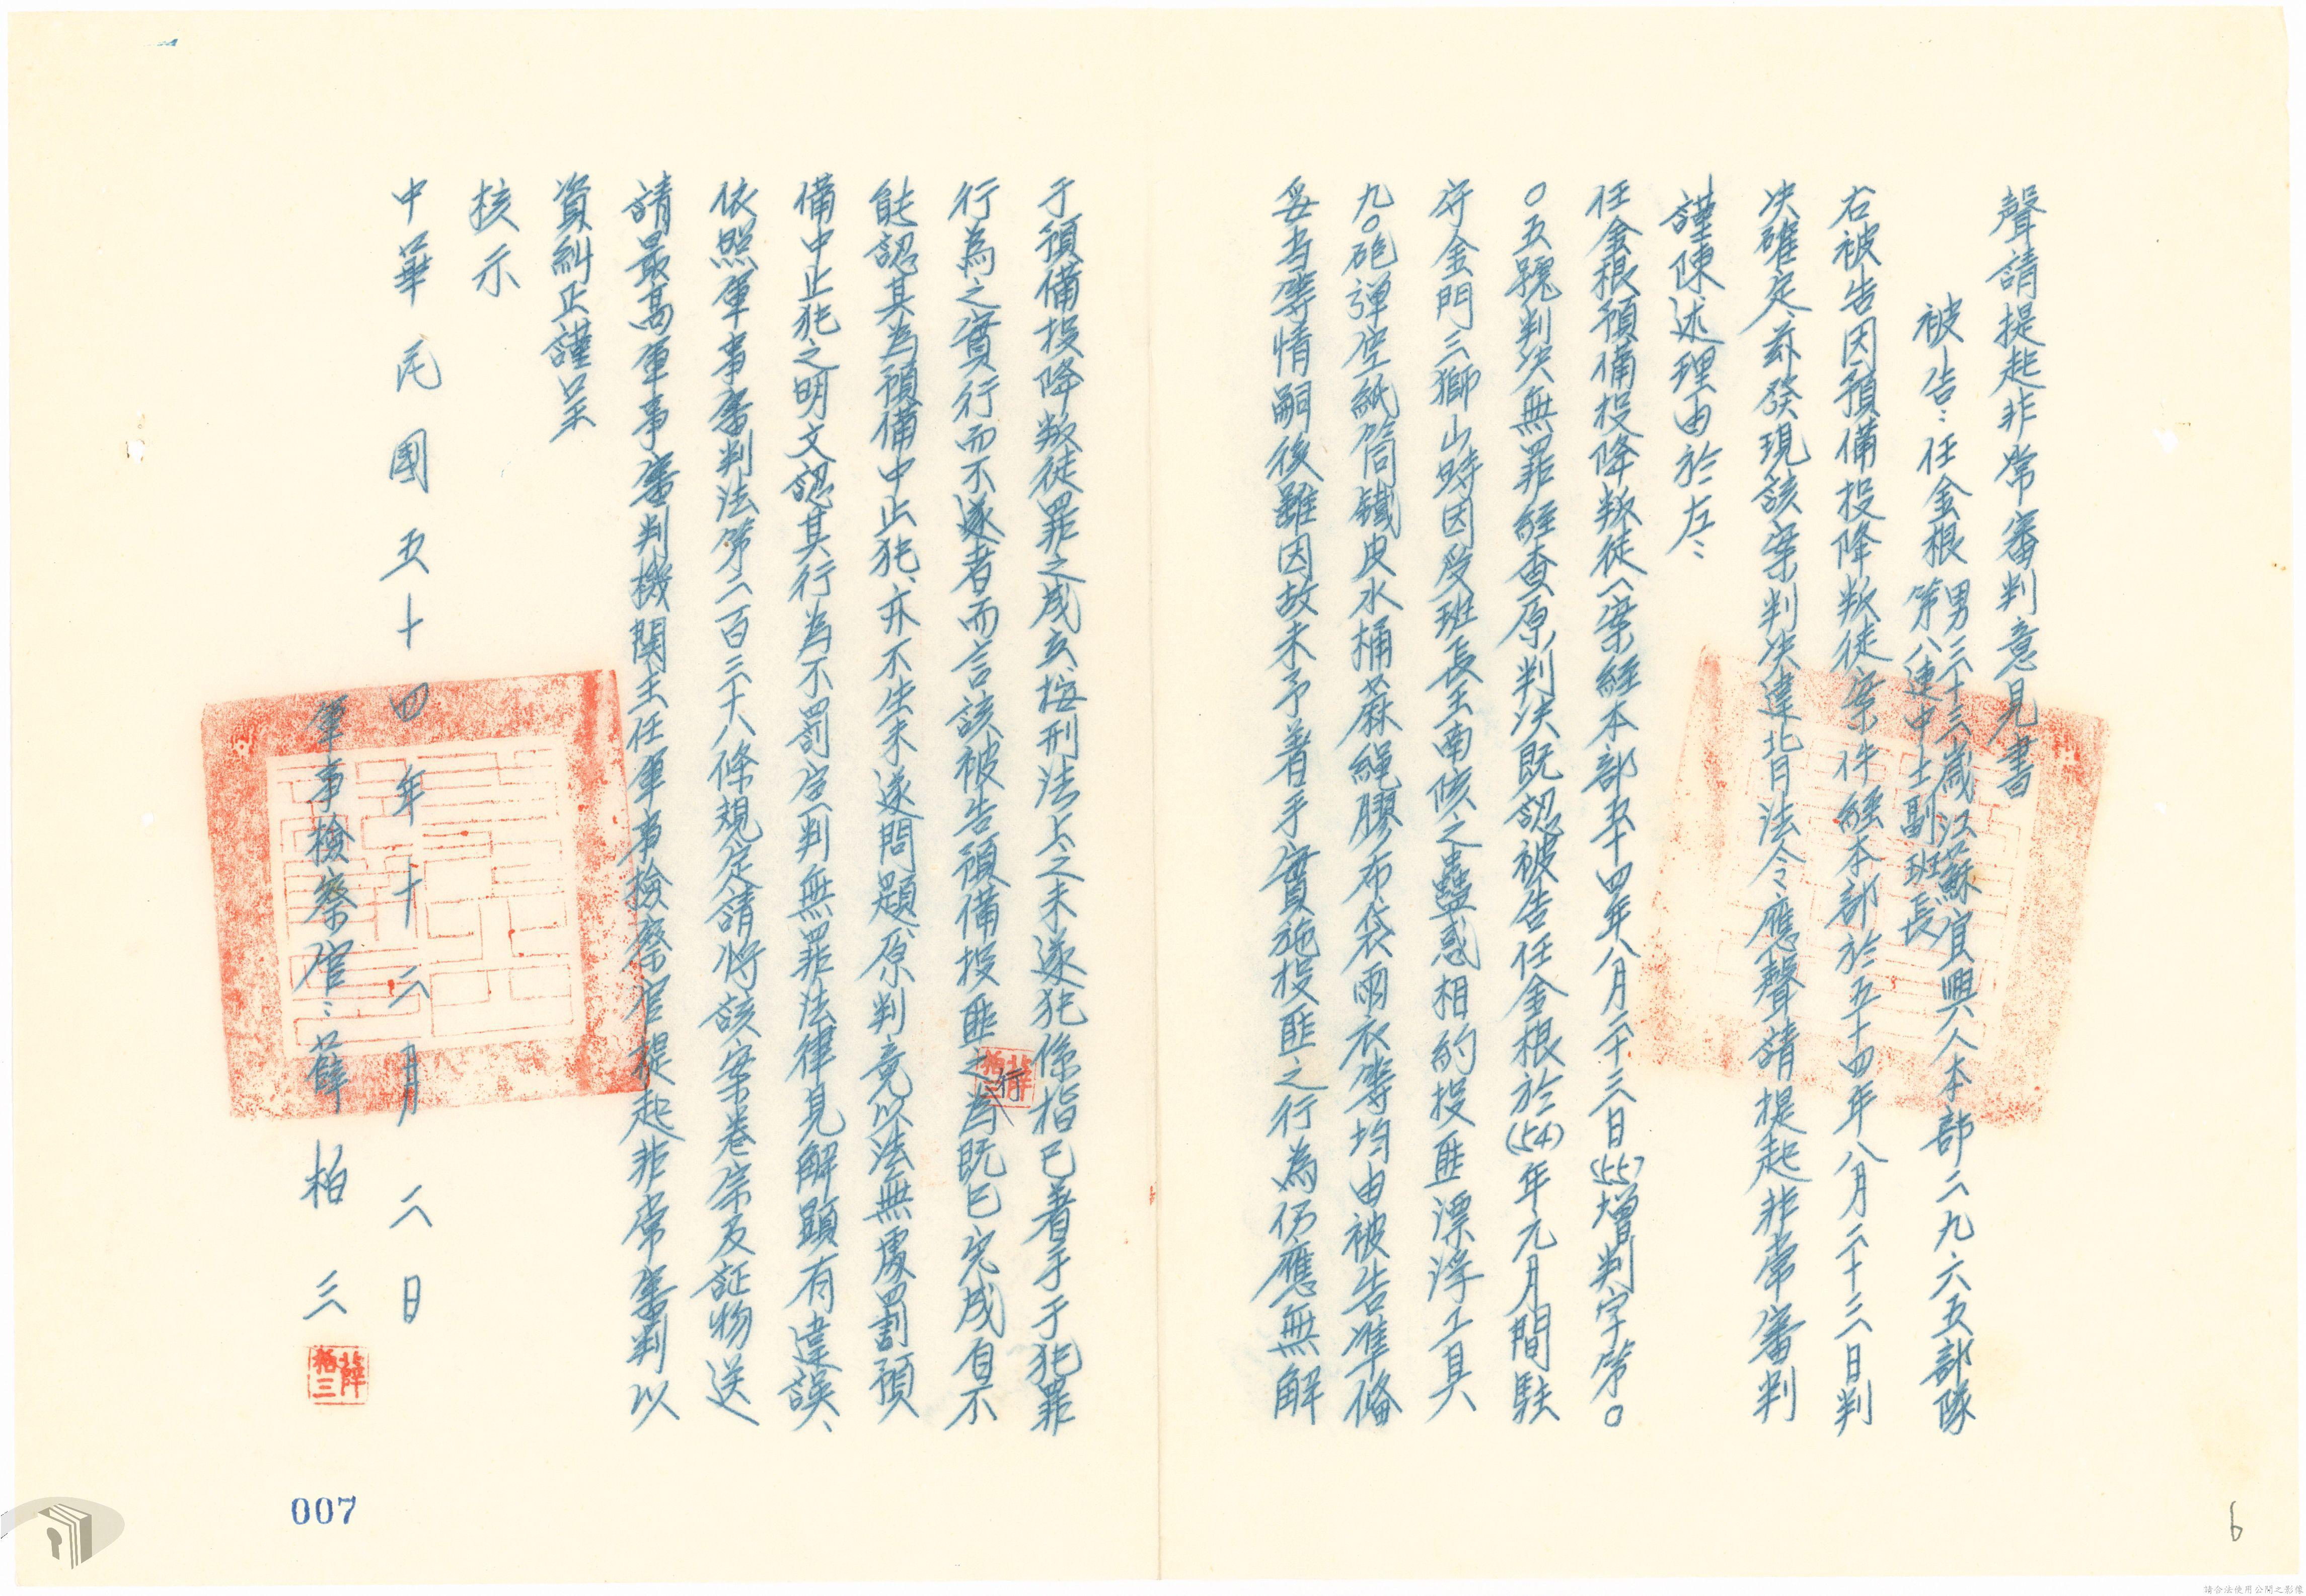 聲請提起非常審判意見書
被告：任金根 男三十三歲江蘇宜興人本部二九六五部隊
第八連中士副班長
右被告因預備投降叛徒案件經本部於五十四年八月二十三日判
決確定茲發現該案判決違背法令應聲請提起非常審判
謹陳述理由於左：
任金根預備投降叛徒一案經本部五十四年八月二十三日(55)增判字第〇
〇五號判決無罪經查原判決既認被告任金根於(54)年元月間駐
守金門三獅山時因受班長王南陔之蠱惑相約投匪漂浮工具
九〇砲彈空紙筒鐵皮水桶蔴繩膠布袋雨衣等均由被告準備
妥當等情嗣後雖因故未予著手實施投匪之行為仍應無解
于預備投降叛徒罪之成立、按刑法上之未遂犯係指已著手于犯罪
行為之實行而不遂者而言該被告預備投匪之行為既已完成自不
能認其為預備中止犯、亦不生未遂問題、原判竟以法無處罰預
備中止犯之明文認其行為不罰宣判無罪法律見解顯有違誤、
依照軍事審判法第二百三十八條規定請將該案卷宗及証物送
請最高軍事審判機關主任軍事檢察官提起非常審判以
資糾正謹呈
核示
中華民國五十四年十二月二日
軍事檢察官：薛柏三
薛柏三
薛柏三
007
6
請合法使用公開之影像